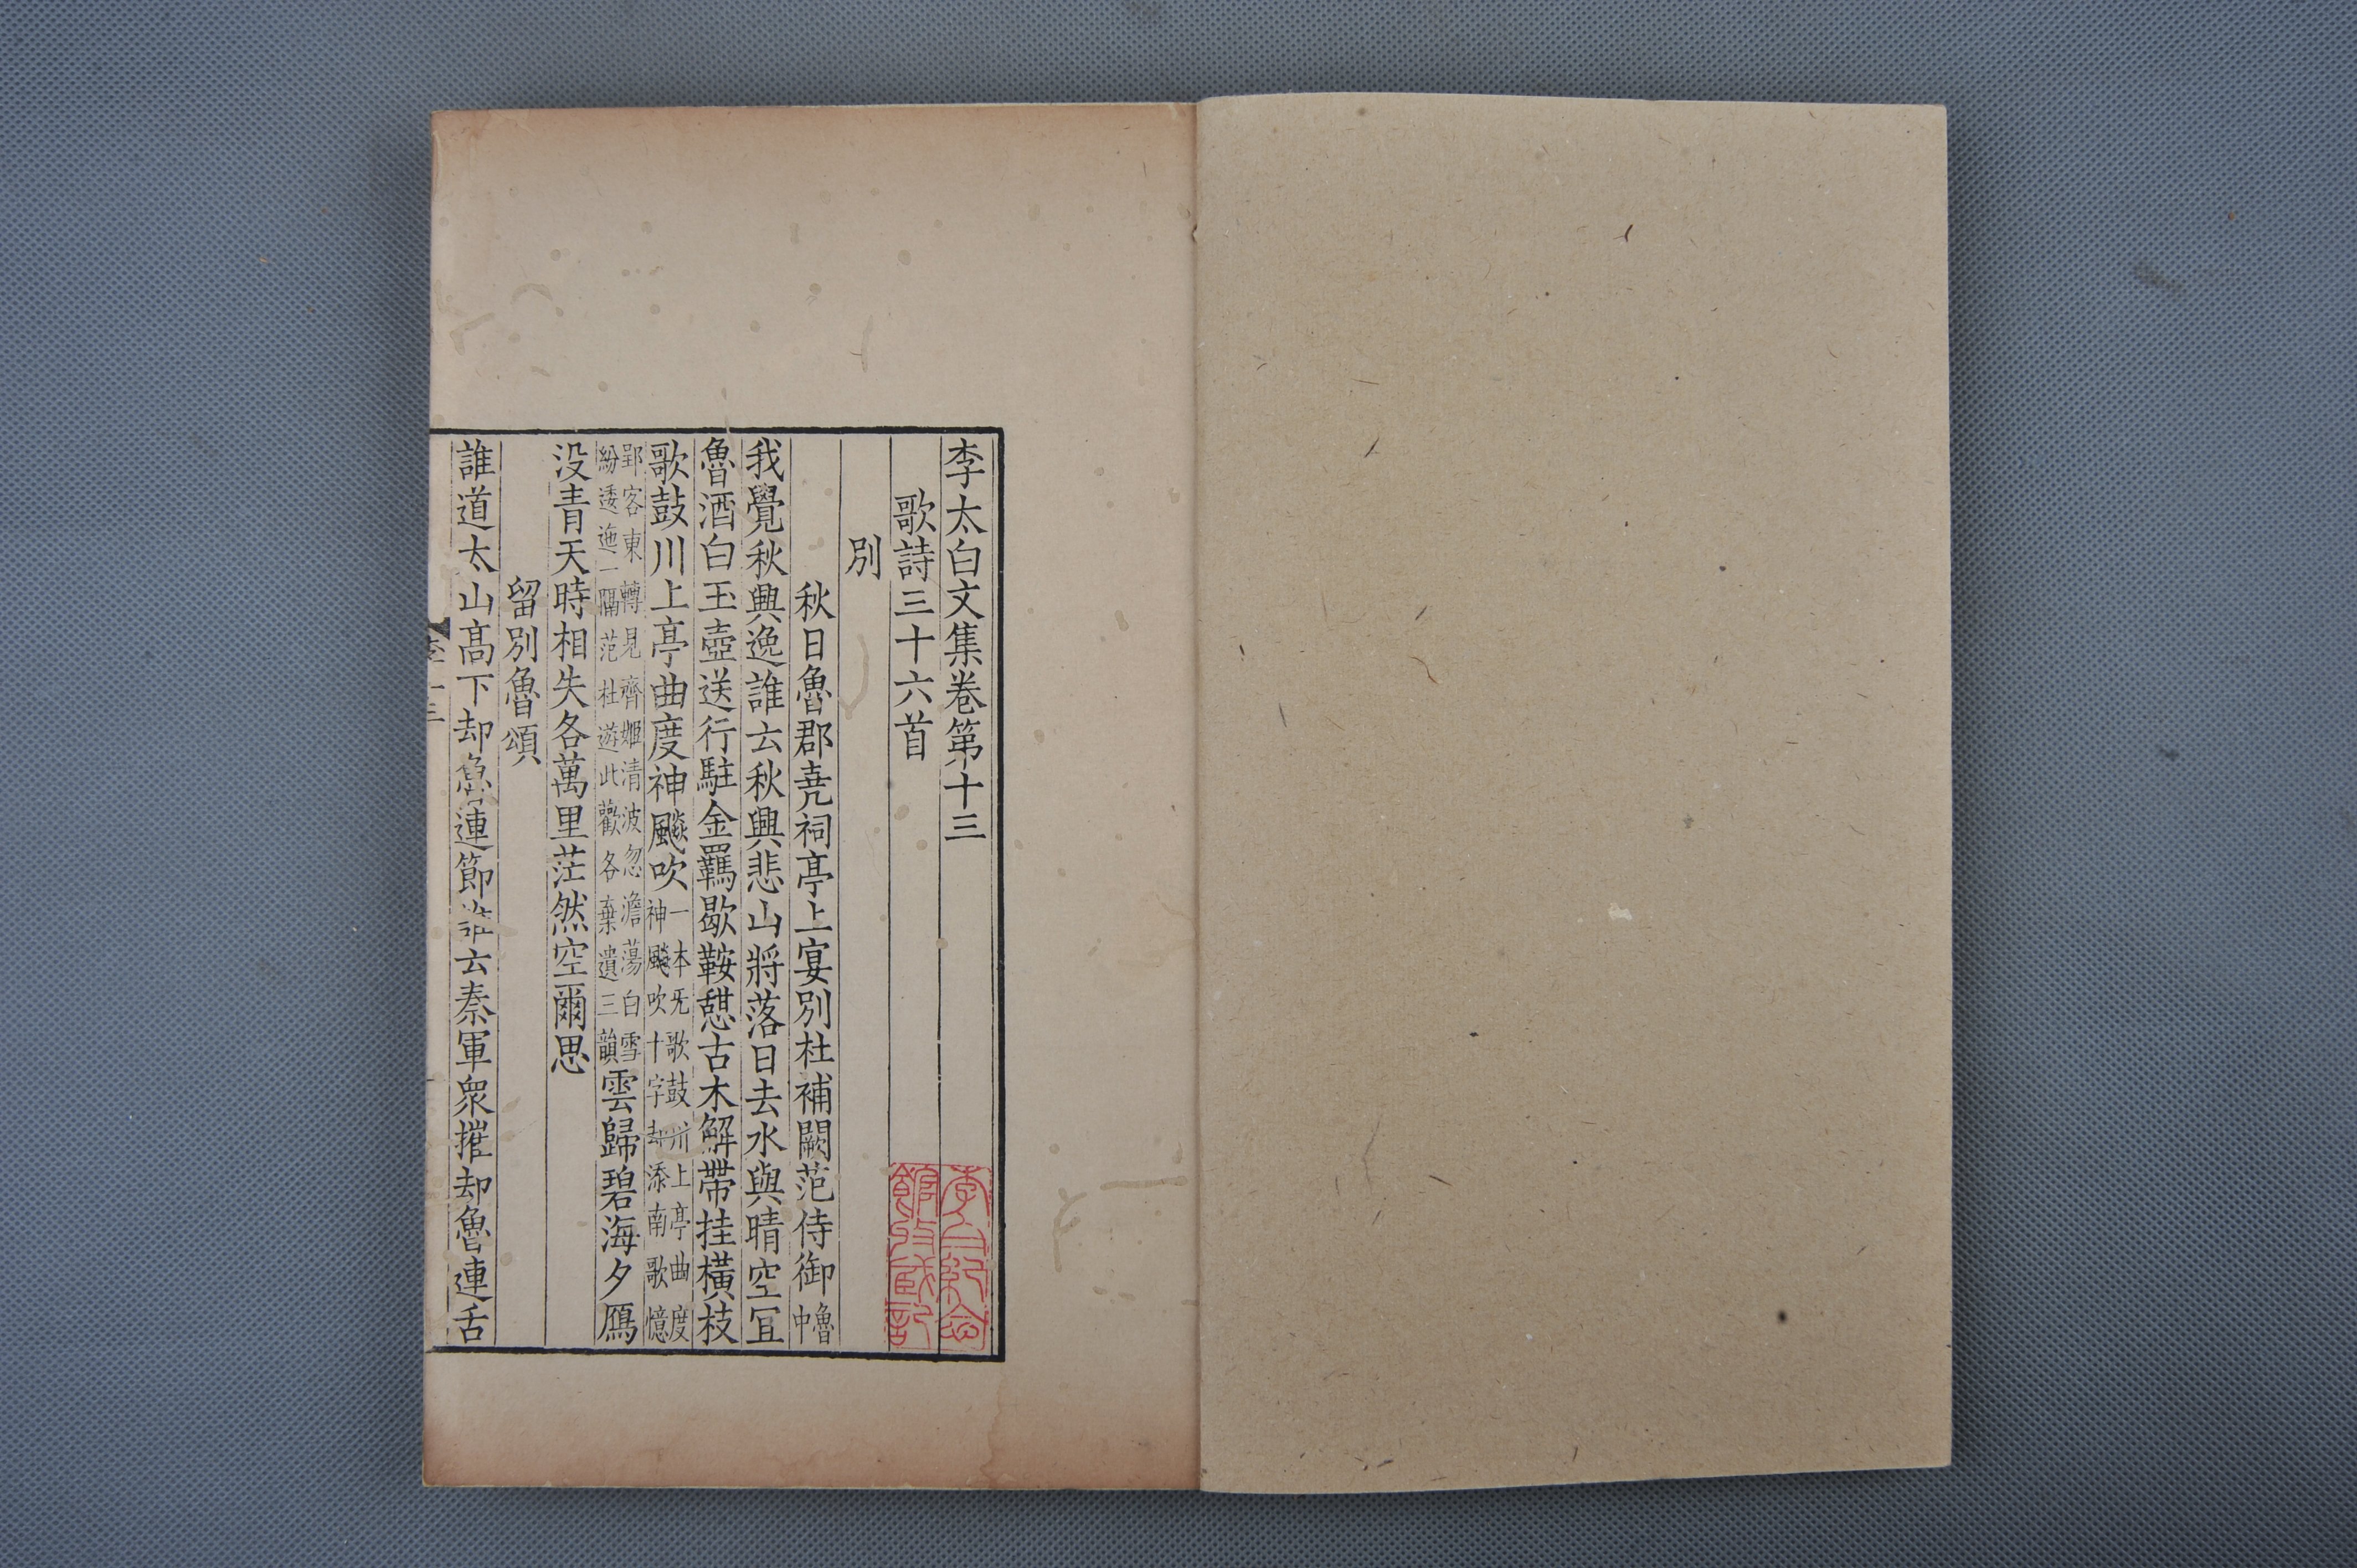 李太白文集卷第十三
歌詩三十六首
別
秋日魯郡堯祠亭上宴別杜補闕范侍御魯中
我覺秋興逸誰云秋興悲山將落日去水與晴空宜
魯酒白玉壺送行駐金羈歇鞍憩古木解帶挂橫枝
歌鼓川上亭曲度神飈吹一本无歌鼓川上亭曲度神飈吹十字却添南歌憶
郢客東轉見齊姬清波忽澹蕩白雪紛逶迤一隔范杜遊此歡各棄遺三韻雲歸碧海夕鴈
没青天時相失各萬里茫然空爾思
留別魯頌
誰道太山高下却魯連節誰云秦軍衆摧却魯連舌
李白紀念
館收藏記